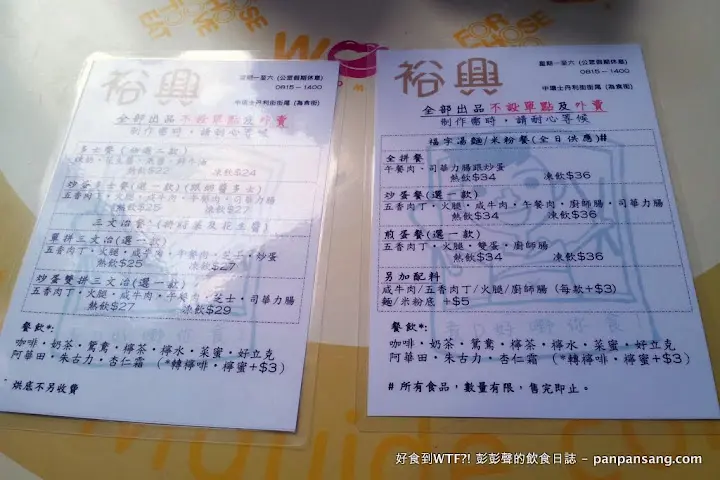 FOR
CHOOSE
EAT
裕興
星期一至六 (公眾假期休息)
0815-1400
中環士丹利街街尾 (為食街)
全部出品不設單點及外賣
制作需時，請耐心等候
多士餐
熱飲$22 凍飲$24
炒蛋多士餐(選一款)
五香肉丁・火腿・咸牛肉・午餐肉・司華力腸
熱飲$25 凍飲$27
三文治餐
單拼三文治(選一款)
五香肉丁・火腿・咸牛肉・午餐肉・芝士・炒蛋
熱飲$25 凍飲$27
炒蛋雙拼三文治(選一款)
五香肉丁・火腿・咸牛肉・午餐肉・芝士・司華力腸
熱飲$27 凍飲$29
餐飲*:
咖啡・奶茶・鴛鴦・檸茶・檸水・菜蜜・好立克
阿華田・朱古力・杏仁霜 (*轉檸啡・檸蜜+$3)
烘底不另收費
裕興
星期一至六 (公眾假期休息)
0815-1400
中環士丹利街街尾 (為食街)
全部出品不設單點及外賣
制作需時，請耐心等候
福字湯麵/米粉餐(全日供應)#
全拼餐
午餐肉・司華力腸跟炒蛋
熱飲$34 凍飲$36
炒蛋餐(選一款)
五香肉丁・火腿・咸牛肉・午餐肉・廚師腸・司華力腸
熱飲$34 凍飲$36
煎蛋餐(選一款)
五香肉丁・火腿・雙蛋・廚師腸
熱飲$34 凍飲$36
另加配料
咸牛肉/五香肉丁/火腿/廚師腸 (每款+$3)
麵/米粉底 +$5
餐飲*:
咖啡・奶茶・鴛鴦・檸茶・檸水・菜蜜・好立克
阿華田・朱古力・杏仁霜 (*轉檸啡・檸蜜+$3)
# 所有食品，數量有限，售完即止。
好食到WTF?! 彭彭聲的飲食日誌 - panpansang.com